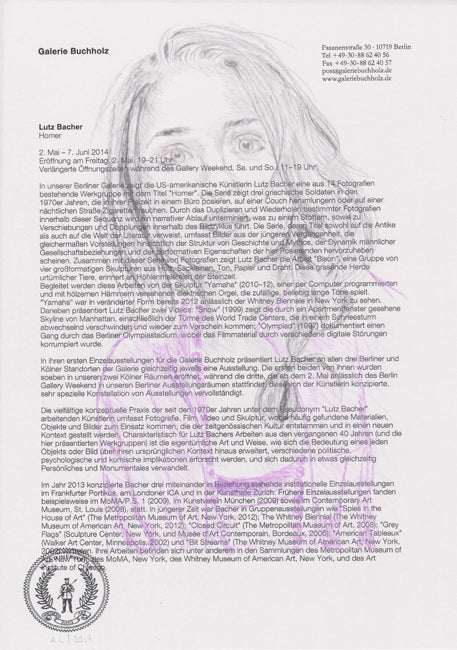 Galerie Buchholz
Fasanenstraße 30 · 10719 Berlin
Tel +49-30-88 62 40 56
Fax +49-30-88 62 40 57
post@galeriebuchholz.de
www.galeriebuchholz.de
Lutz Bacher
Homer
2. Mai – 7. Juni 2014
Eröffnung am Freitag, 2. Mai, 19–21 Uhr
Verlängerte Öffnungszeiten während des Gallery Weekend, Sa. und So.: 11–19 Uhr
In unserer Berliner Galerie zeigt die US-amerikanische Künstlerin Lutz Bacher eine aus 14 Fotografien
bestehende Werkgruppe mit dem Titel "Homer". Die Serie zeigt drei griechische Soldaten in den
1970er Jahren, die in ihrer Freizeit in einem Büro posieren, auf einer Couch herumlungern oder auf einer
nächtlichen Straße Zigaretten rauchen. Durch das Duplizieren und Wiederholen bestimmter Fotografien
innerhalb dieser Sequenz wird ein narrativer Ablauf unterminiert, was zu einem Stottern, sowie zu
Verschiebungen und Dopplungen innerhalb des Bildzyklus führt. Die Serie, deren Titel sowohl auf die Antike
als auch auf die Welt der Literatur verweist, umfasst Bilder aus der jüngeren Vergangenheit, die
gleichermaßen Vorstellungen hinsichtlich der Struktur von Geschichte und Mythos, der Dynamik männlicher
Gesellschaftsbeziehungen und den performativen Eigenschaften der hier Posierenden hervorzuheben
scheinen. Zusammen mit dieser Serie von Fotografien zeigt Lutz Bacher die Arbeit "Bison", eine Gruppe von
vier großformatigen Skulpturen aus Holz, Sackleinen, Ton, Papier und Draht. Diese grasende Herde
urtümlicher Tiere, erinnert an Höhlenmalereien der Steinzeit.
Begleitet werden diese Arbeiten von der Skulptur "Yamaha" (2010–12), einer per Computer programmierten
und mit hölzernen Hämmern versehenen elektrischen Orgel, die zufällige, beliebig lange Töne spielt.
"Yamaha" war in veränderter Form bereits 2012 anlässlich der Whitney Biennale in New York zu sehen.
Daneben präsentiert Lutz Bacher zwei Videos: "Snow" (1999) zeigt die durch ein Apartmentfenster gesehene
Skyline von Manhattan, einschließlich der Türme des World Trade Centers, die in einem Schneesturm
abwechselnd verschwinden und wieder zum Vorschein kommen; "Olympiad" (1997) dokumentiert einen
Gang durch das Berliner Olympiastadium, wobei das Filmmaterial durch zufällige digitale Störungen
korrumpiert wurde.
In ihren ersten Einzelausstellungen für die Galerie Buchholz präsentiert Lutz Bacher an allen drei Berliner und
Kölner Standorten der Galerie gleichzeitig jeweils eine Ausstellung. Die ersten beiden von ihnen wurden
soeben in unseren zwei Kölner Räumen eröffnet, während die dritte, die ab dem 2. Mai anlässlich des Berlin
Gallery Weekend in unseren Berliner Ausstellungsräumen stattfindet, diese von der Künstlerin konzipierte,
sehr spezielle Konstellation von Ausstellungen vervollständigt.
Die vielfältige konzeptuelle Praxis der seit den 1970er Jahren unter dem Pseudonym "Lutz Bacher"
arbeitenden Künstlerin umfasst Fotografie, Film, Video und Skulptur, wobei häufig gefundene Materialien,
Objekte und Bilder zum Einsatz kommen, die der zeitgenössischen Kultur entstammen und in einen neuen
Kontext gestellt werden. Charakteristisch für Lutz Bachers Arbeiten aus den vergangenen 40 Jahren (und die
hier präsentierten Werkgruppen) ist die eigentümliche Art und Weise, wie sich die Bedeutung eines jeden
Objekts oder Bild über ihren ursprünglichen Kontext hinaus erweitert, verschiedene politische,
psychologische und komische Implikationen erforscht werden, und sich dadurch in etwas gleichzeitig
Persönliches und Monumentales verwandelt.
Im Jahr 2013 konzipierte Bacher drei miteinander in Beziehung stehende institutionelle Einzelausstellungen
im Frankfurter Portikus, am Londoner ICA und in der Kunsthalle Zürich. Frühere Einzelausstellungen fanden
beispielsweise im MoMA/P.S. 1 (2009), im Kunstverein München (2009) sowie im Contemporary Art
Museum, St. Louis (2008), statt. In jüngerer Zeit war Bacher in Gruppenausstellungen wie "Spies in the
House of Art" (The Metropolitan Museum of Art, New York, 2012); The Whitney Biennial (The Whitney
Museum of American Art, New York, 2012); "Closed Circuit" (The Metropolitan Museum of Art, 2008); "Grey
Flags" (Sculpture Center, New York, und Musée d'Art Contemporain, Bordeaux, 2006); "American Tableaux"
(Walker Art Center, Minneapolis, 2002) und "Bit Streams" (The Whitney Museum of American Art, New York,
vertreten. Ihre Arbeiten befinden sich unter anderem in den Sammlungen des Metropolitan Museum of
Art, New York, des MoMA, New York, des Whitney Museum of American Art, New York, und des Art
Institute of Chicago.
AL/2014